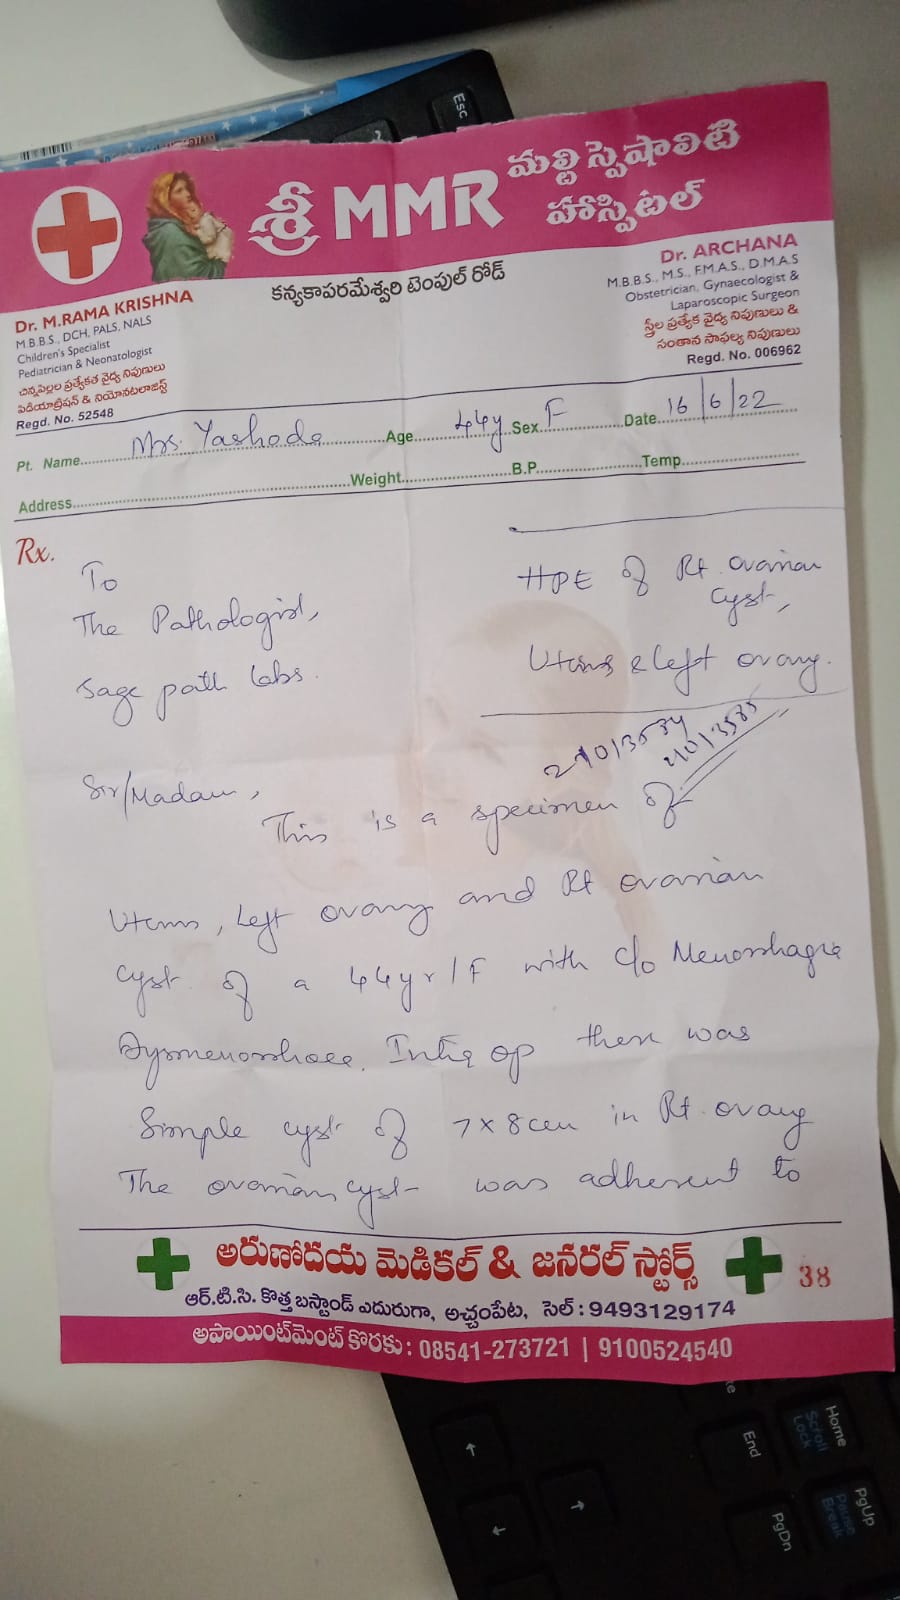 Esc
శ్రీ MMR మల్టి స్పెషాలిటి
హాస్పిటల్
కన్యకాపరమేశ్వరి టెంపుల్ రోడ్
Dr. M.RAMA KRISHNA
M.B.B.S., DCH, PALS, NALS
Children's Specialist
Pediatrician & Neonatologist
చిన్నపిల్లల ప్రత్యేకత వైద్య నిపుణులు
పిడియాట్రిషన్ & నియోనటలాజిస్ట్
Regd. No. 52548
Dr. ARCHANA
M.B.B.S., M.S., F.M.A.S., D.M.A.S
Obstetrician, Gynaecologist &
Laparoscopic Surgeon
స్త్రీల ప్రత్యేక వైద్య నిపుణులు &
సంతాన సాఫల్య నిపుణులు
Regd. No. 006962
Pt. Name Mrs. Yashoda Age 44y Sex F Date 16/6/22
Address Weight B.P. Temp.
Rx.
HPE of Rt. ovarian
cyst,
Uterus & left ovary.
To
The Pathologist,
Sage path labs.
Sir/Madam,
This is a specimen of
Uterus, Left ovary and Rt ovarian
cyst of a 44yr/F with c/o Menorrhagia
Dysmenorrhoea. Intra op there was
Simple cyst of 7x8cm in Rt. ovary
The ovarian cyst was adherent to
అరుణోదయ మెడికల్ & జనరల్ స్టోర్స్
38
ఆర్.టి.సి. కొత్త బస్టాండ్ ఎదురుగా, అచ్చంపేట, సెల్ : 9493129174
అపాయింట్‌మెంట్ కొరకు : 08541-273721 | 9100524540
Home
Scroll
Lock
End
PgUp
Pause
Break
PgDn